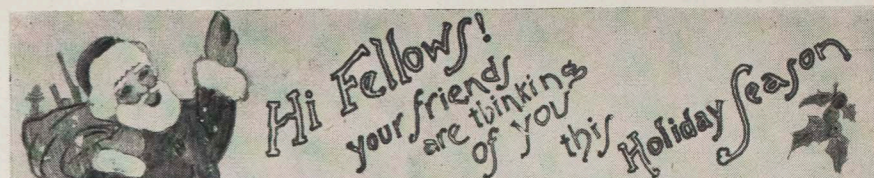 Hi Fellows!
your friends
are thinking
of you
this Holiday Season